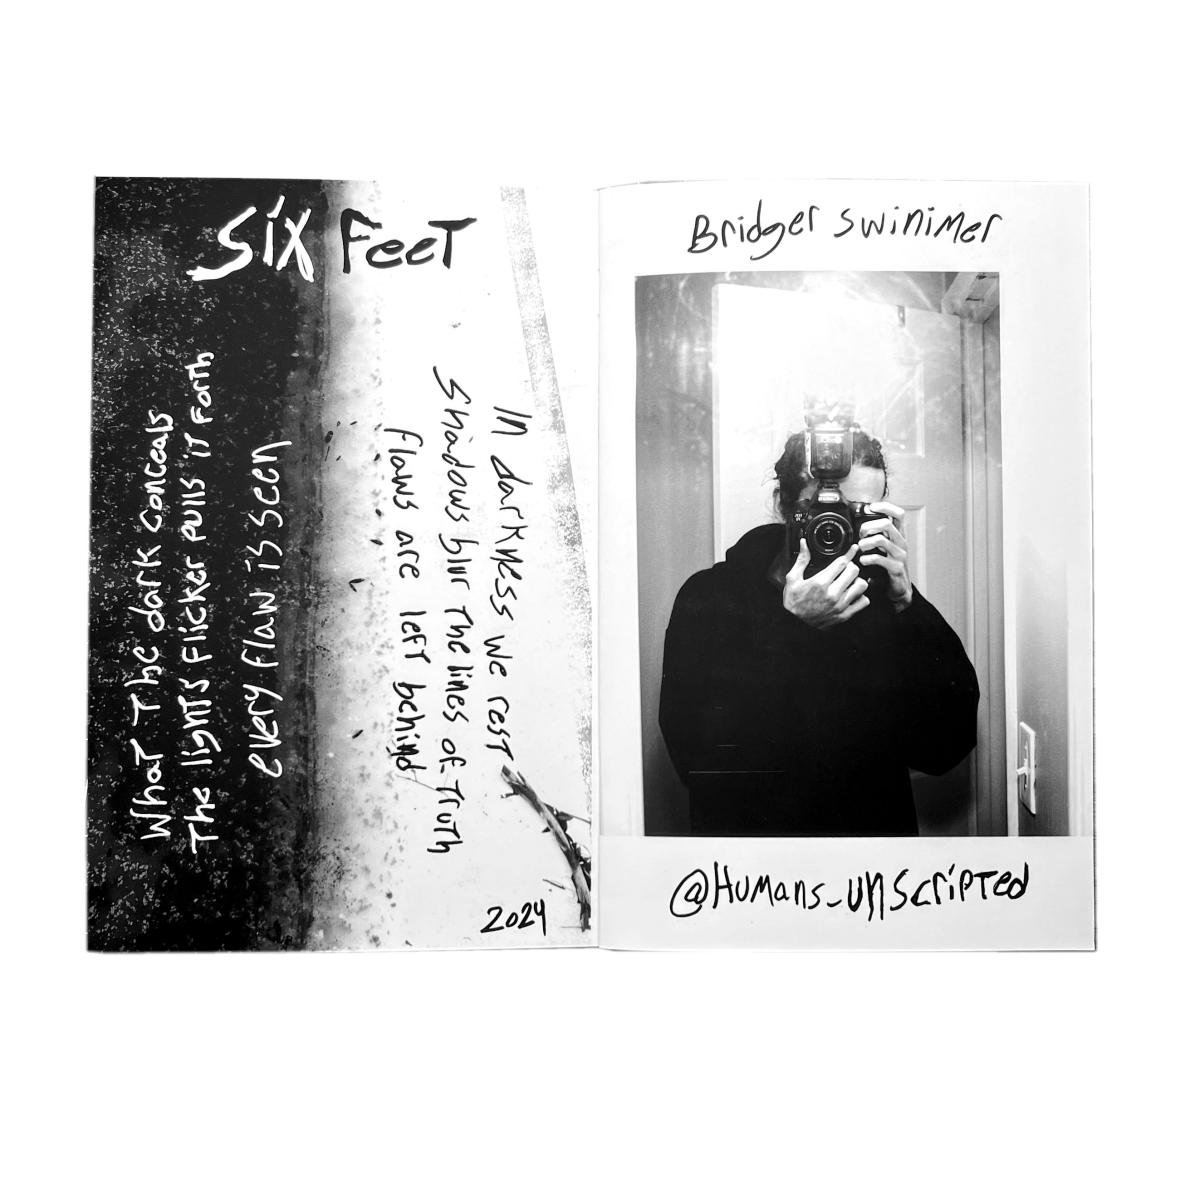 Six Feet
What The dark conceals
The lights flicker pulls it forth
every flaw is seen
In darkness we rest
Shadows blur the lines of Truth
flaws are left behind
2024
Bridger Swinimer
@Humans_unscripted